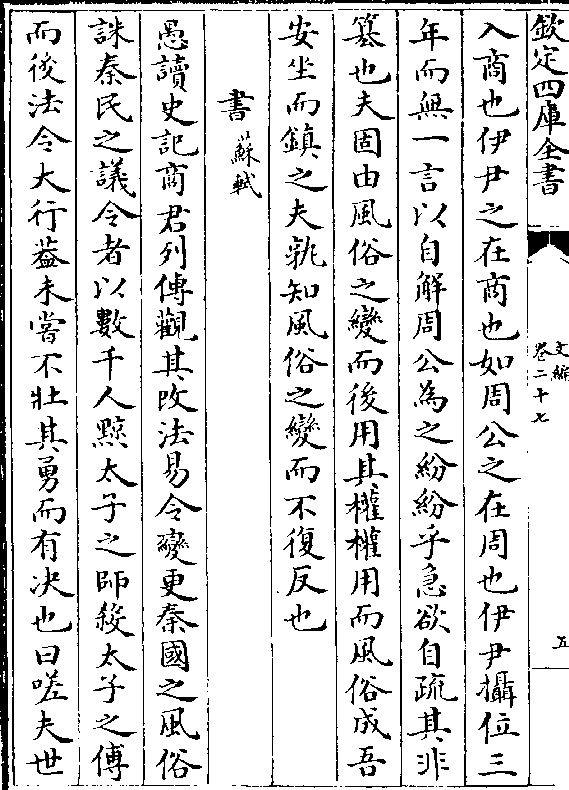 欽定四庫全書
文編
卷二十七
五
入商也伊尹之在商也如周公之在周也伊尹攝位三
年而無一言以自解周公為之紛紛乎急欲自疏其非
簒也夫固由風俗之變而後用其權權用而風俗成吾
安坐而鎮之夫孰知風俗之變而不復反也
書 蘇軾
愚讀史記商君列傳觀其改法易令變更秦國之風俗
誅秦民之議令者以數千人黥太子之師殺太子之傅
而後法令大行葢未嘗不壯其勇而有决也曰嗟夫世